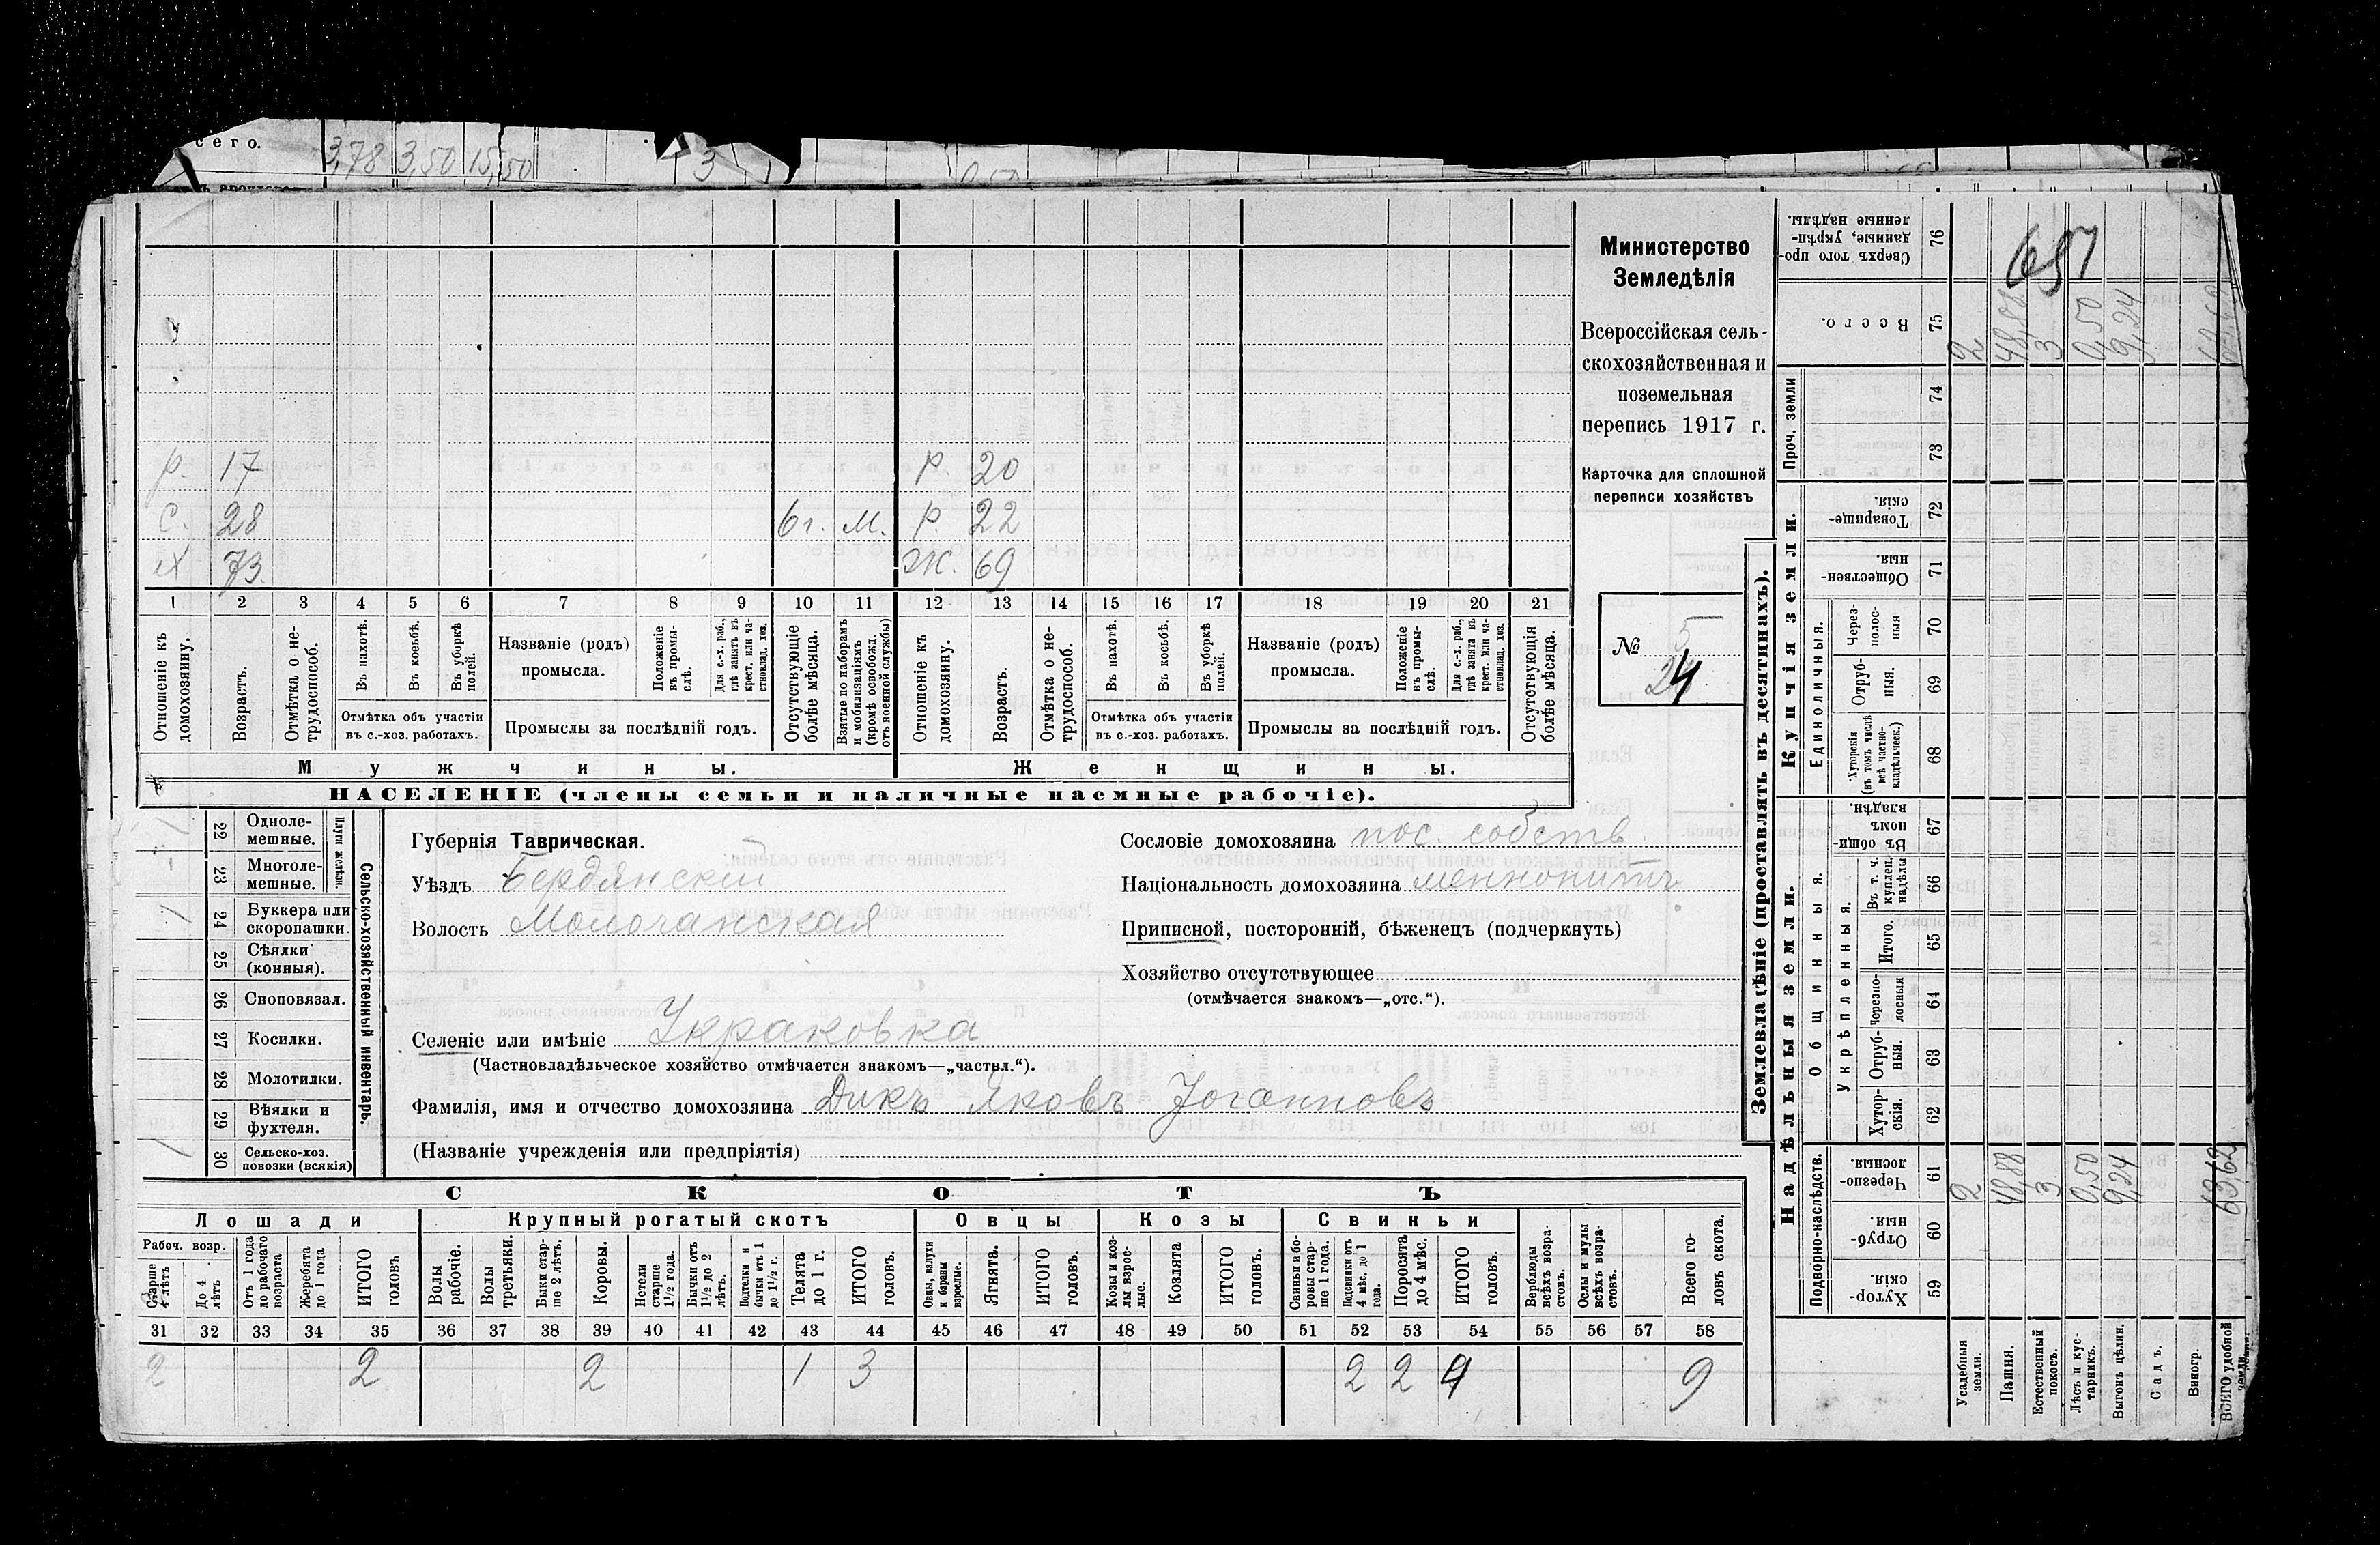 сего. 3,78 3,50 15,50 3
Министерство
Земледѣлія
Всероссійская сель-
скохозяйственная и
поземельная
перепись 1917 г.
Карточка для сплошной
переписи хозяйствъ
№ 5
24
р. 17 р. 20
с. 28 6 г. м. р. 22
х 73 ж. 69
1 2 3 4 5 6 7 8 9 10 11 12 13 14 15 16 17 18 19 20 21
Отношеніе къ домохозяину.
Возрастъ.
Отмѣтка о не-трудоспособ.
Въ пахотѣ.
Въ косьбѣ.
Въ уборкѣ полей.
Отмѣтка объ участіи
въ с.-хоз. работахъ.
Названіе (родъ)
промысла.
Положеніе въ промы-слѣ.
Для с.-х. раб., гдѣ занятъ въ крест. или ча-стновлад. хоз.
Промыслы за послѣдній годъ.
Отсутствующіе болѣе мѣсяца.
Взятые по наборамъ и мобилизаціямъ (кромѣ освобожд. отъ военной службы)
Отношеніе къ домохозяину.
Возрастъ.
Отмѣтка о не-трудоспособ.
Въ пахотѣ.
Въ косьбѣ.
Въ уборкѣ полей.
Отмѣтка объ участіи
въ с.-хоз. работахъ.
Названіе (родъ)
промысла.
Положеніе въ промы-слѣ.
Для с.-х. раб., гдѣ занята въ крест. или ча-стновлад. хоз.
Промыслы за послѣдній годъ.
Отсутствующія болѣе мѣсяца.
Мужчины. Женщины.
НАСЕЛЕНІЕ (члены семьи и наличные наемные рабочіе).
Сельско-хозяйственный инвентарь.
Плуги желѣзн.
22 Одноле-мешные.
23 Многоле-мешные.
24 Буккера или скоропашки.
25 Сѣялки (конныя).
26 Сноповязал.
27 Косилки.
28 Молотилки.
29 Вѣялки и фухтеля.
30 Сельско-хоз. повозки (всякія)
Губернія Таврическая.
Уѣздъ Бердянскій
Волость Молочанская
Селеніе или имѣніе
(Частновладѣльческое хозяйство отмѣчается знакомъ—„частвл.“).
Фамилія, имя и отчество домохозяина Дикъ Яковъ Іоганновъ
(Названіе учрежденія или предпріятія)
Сословіе домохозяина пос. собств.
Національность домохозяина меннонитъ
Приписной, посторонній, бѣженецъ (подчеркнуть)
Хозяйство отсутствующее
(отмѣчается знакомъ—„отс.“).
СКОТЪ
Лошади Крупный рогатый скотъ Овцы Козы Свиньи
Рабоч. возр.
Старше 4 лѣтъ
До 4 лѣтъ
Отъ 1 года до рабочаго возраста
Жеребята до 1 года
ИТОГО головъ
Волы рабочіе.
Волы третьяки.
Быки стар-ше 2 лѣтъ.
Коровы.
Нетели старше 1½ года.
Бычки отъ 1½ до 2 лѣтъ.
Подтелки и бычки отъ 1 до 1½ г.
Телята до 1 г.
ИТОГО головъ.
Овцы, валухи и бараны взрослые.
Ягнята.
ИТОГО головъ.
Козы и коз-лы взрос-лые.
Козлята
ИТОГО головъ.
Свиньи и бо-ровы стар-ше 1 года.
Подсвинки отъ 4 мѣс. до 1 года.
Поросята до 4 мѣс.
ИТОГО головъ.
Верблюды всѣхъ возра-стовъ.
Ослы и мулы всѣхъ возра-стовъ.
Всего го-ловъ скота.
31 32 33 34 35 36 37 38 39 40 41 42 43 44 45 46 47 48 49 50 51 52 53 54 55 56 57 58
2 2 2 1 3 2 2 4 9
Землевладѣніе (проставлять въ десятинахъ).
Купчія земли.
Надѣльныя земли.
657
Сверхъ того про-данные, укрѣп-ленные надѣлы. 76
Всего. 75 2 48,88 3 0,50 9,24
Проч. земли 74
73
Товарище-скія. 72
Обществен-ныя. 71
Единоличныя.
Через-полос-ныя 70
Отруб-ныя. 69
Хуторскія (въ томъ числѣ всѣ частно-владѣльческ.) 68
Общинныя.
Въ общи-номъ владѣн. 67
Укрѣпленныя.
Въ т. ч. куплен. надѣлы 66
Итого. 65
Черезпо-лосныя 64
Отруб-ныя. 63
Хутор-скія. 62
Подворно-наслѣдств.
Черезпо-лосныя. 61 2 48,88 3 0,50 9,24 63,62
Отруб-ныя. 60
Хутор-скія. 59
Усадебныя земли.
Пашня.
Естественный покосъ.
Лѣсъ и кус-тарникъ.
Выгонъ цѣлин.
Садъ.
Виногр.
ВСЕГО удобной земли.